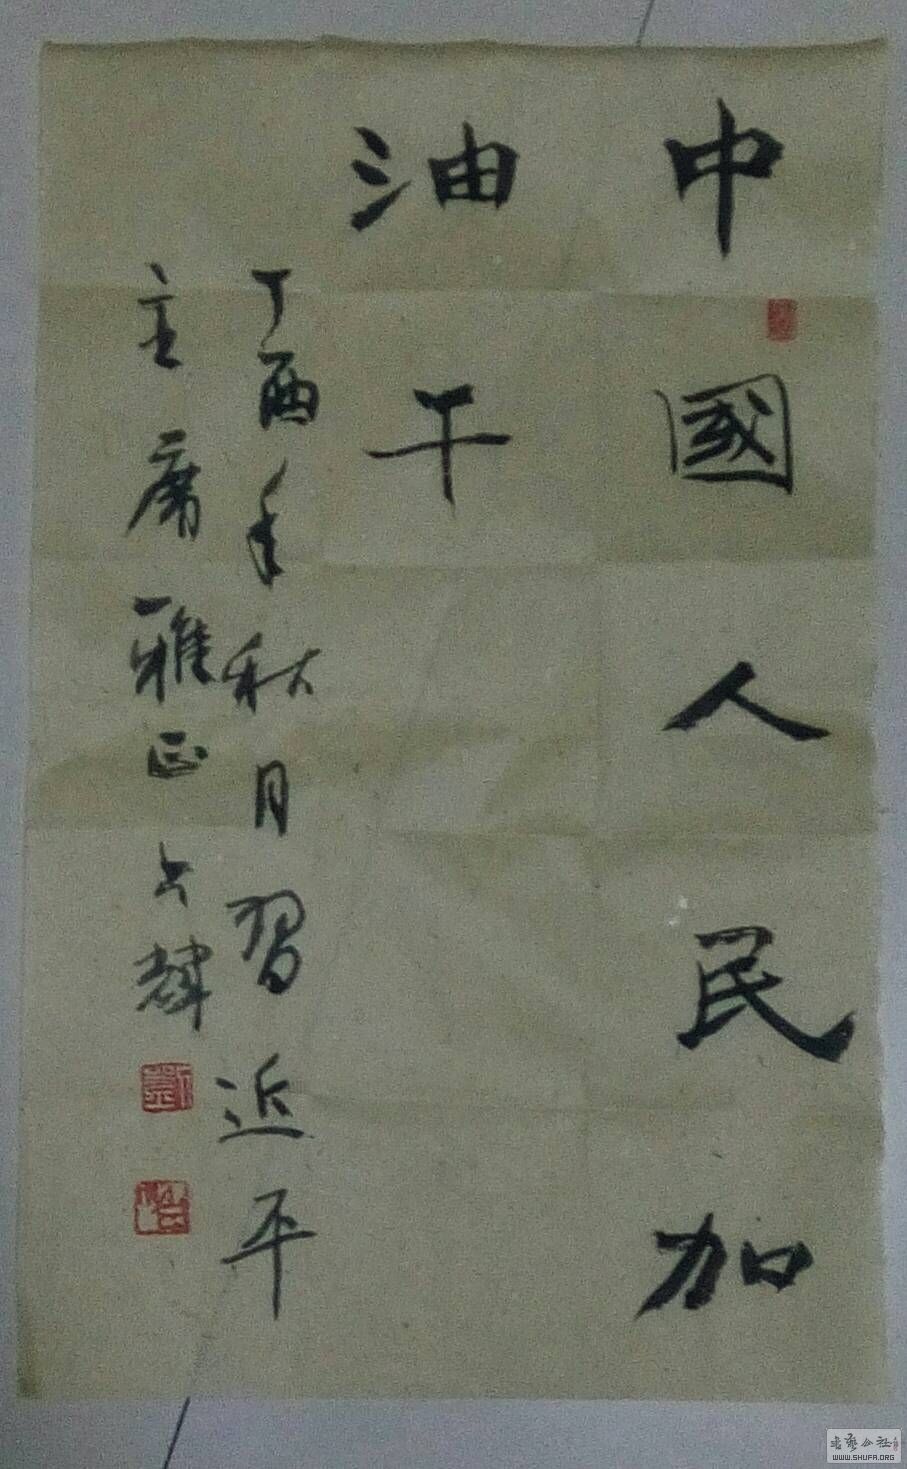 中國人民加
油干
丁酉年秋月習近平
主席雅正
WWW.SHUFA.ORG